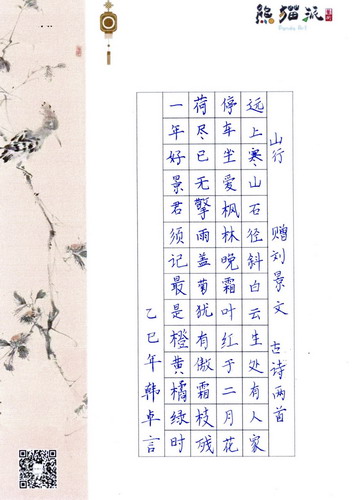 熊猫派
Panda Art
山行 赠刘景文 古诗两首
远上寒山石径斜白云生处有人家
停车坐爱枫林晚霜叶红于二月花
荷尽已无擎雨盖菊犹有傲霜枝残
一年好景君须记最是橙黄橘绿时
乙巳年韩卓言